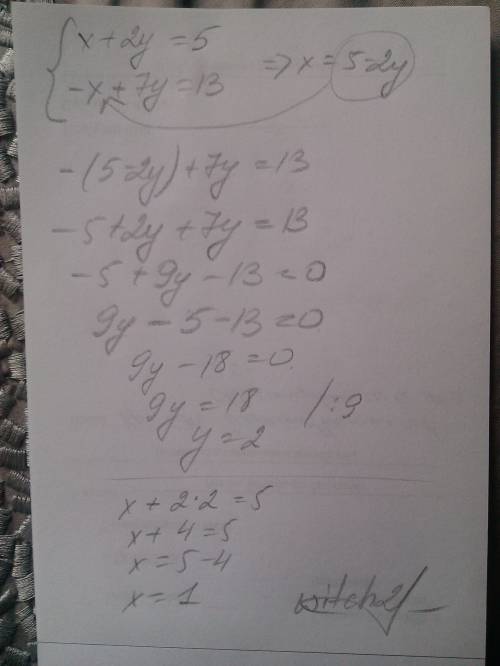 x + 2y = 5
-x + 7y = 13 => x = 5-2y
-(5-2y) + 7y = 13
-5 + 2y + 7y = 13
-5 + 9y - 13 = 0
9y - 5 - 13 = 0
9y - 18 = 0
9y = 18 /:9
y = 2
x + 2·2 = 5
x + 4 = 5
x = 5 - 4
x = 1